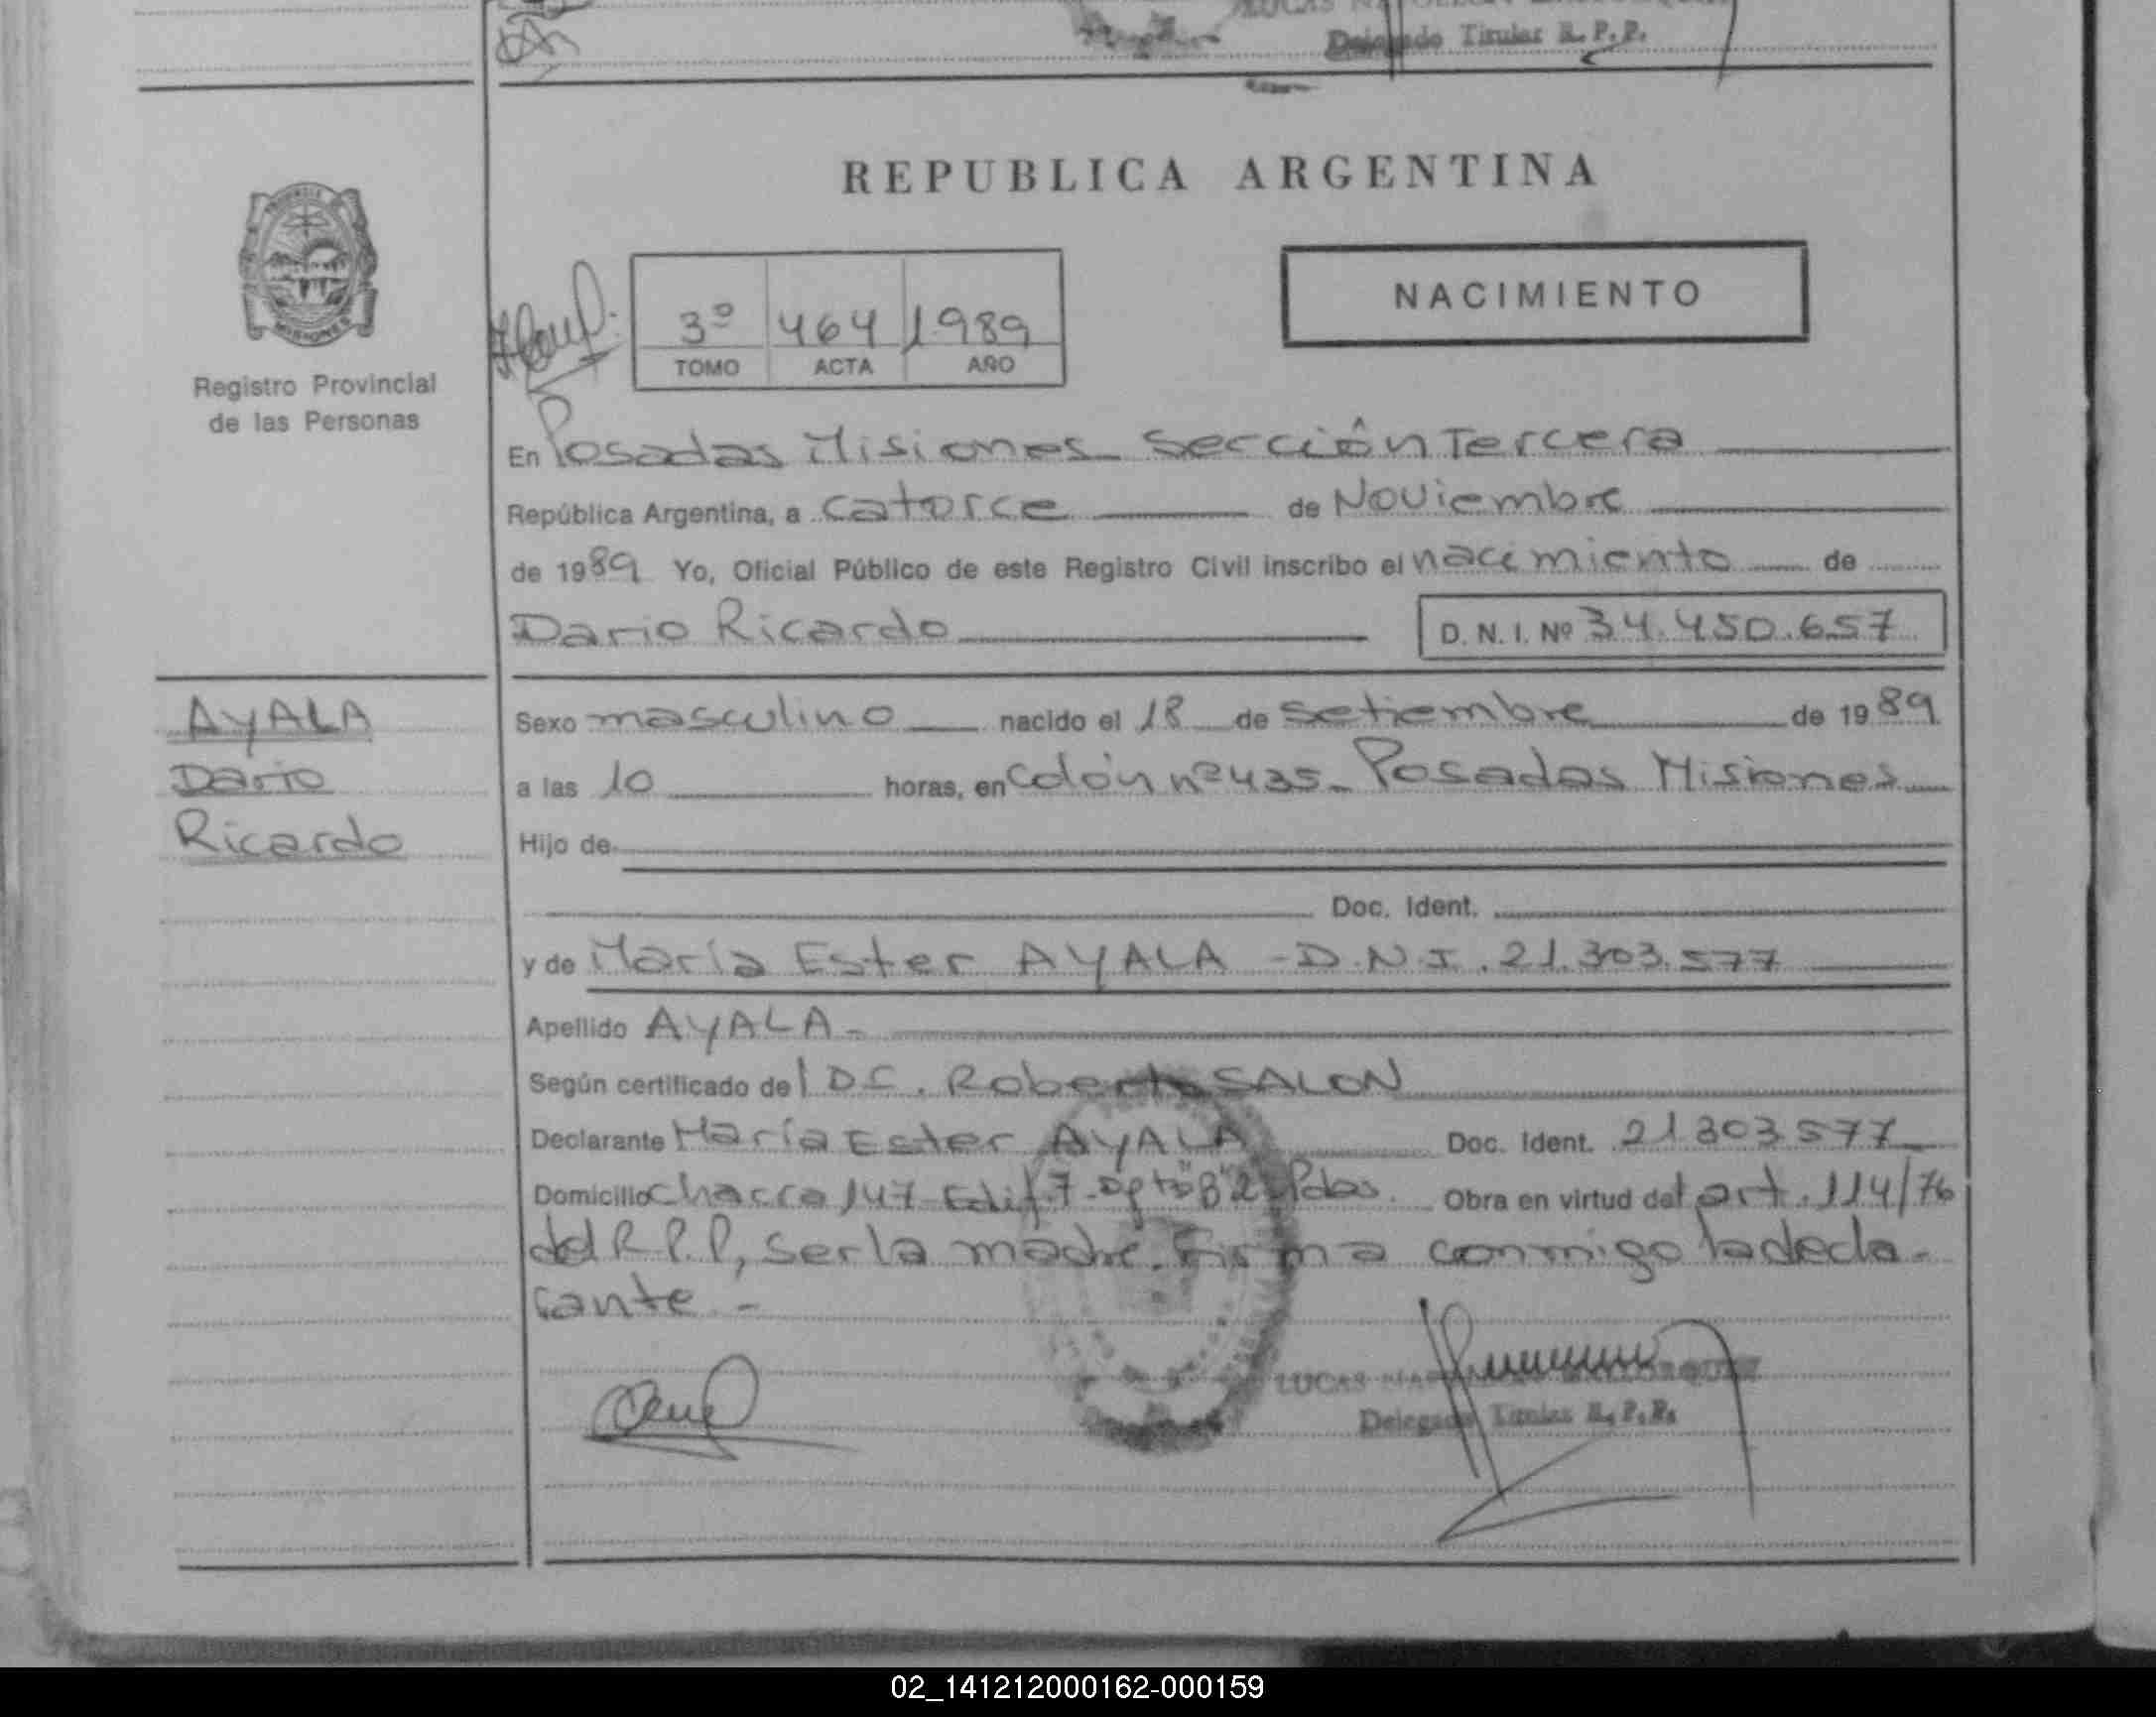 Delegado Titular R. P. P.
REPUBLICA ARGENTINA
NACIMIENTO
3º 464 1989
TOMO ACTA AÑO
Registro Provincial
de las Personas
En Posadas Misiones Sección Tercera
República Argentina, a catorce de Noviembre
de 1989 Yo, Oficial Público de este Registro Civil inscribo el nacimiento de
Dario Ricardo D. N. I. Nº 34.450.657
AYALA
Dario
Ricardo
Sexo masculino nacido el 18 de setiembre de 1989
a las 10 horas, en Colón nº 435- Posadas Misiones
Hijo de
Doc. Ident.
y de María Ester AYALA - D.N.I. 21.303.577
Apellido AYALA-
Según certificado del DC. Roberto SALON
Declarante María Ester AYALA Doc. Ident. 21303577
Domicilio Chacra 147-Edif.7-Dpto"B" Pdas. Obra en virtud del art. 114/76
del R.P.P, ser la madre. Firma conmigo la decla-
rante -
LUCAS
Delegado Titular R. P. P.
02_141212000162-000159